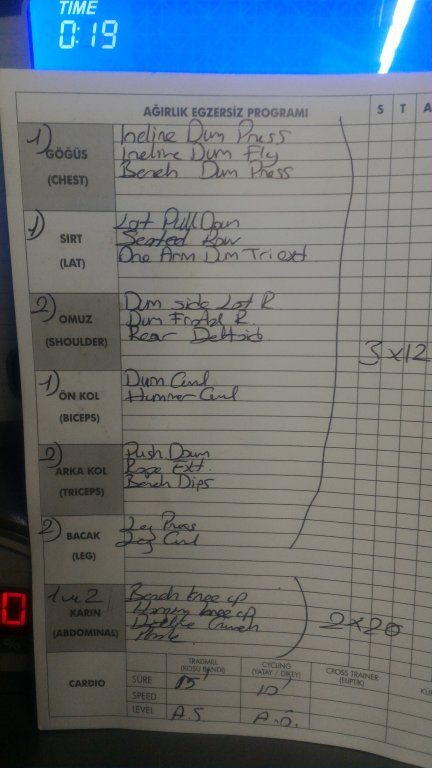 TIME
0:19
AĞIRLIK EGZERSİZ PROGRAMI
S T A
1) GÖĞÜS (CHEST)
Incline Dum Press
Incline Dum Fly
Bench Dum Press
1) SIRT (LAT)
Lat Pull Down
Seated Row
One Arm Dum Tri ext
2) OMUZ (SHOULDER)
Dum side Lat R
Dum Frontal R.
Rear Deltoid
3x12
1) ÖN KOL (BICEPS)
Dum Curl
Hummer Curl
2) ARKA KOL (TRICEPS)
Push Down
Rope Ext.
Bench Dips
2) BACAK (LEG)
Leg Press
Leg Curl
1 ve 2 KARIN (ABDOMINAL)
Bench knee up
Hanging knee up
Crunch
Plank
2x20
CARDIO
TRADMILL (KOŞU BANDI)
CYCLING (YATAY / DİKEY)
CROSS TRAINER (ELİPTİK)
SÜRE 15' 10'
SPEED
LEVEL A.S A.Ö.
0
%